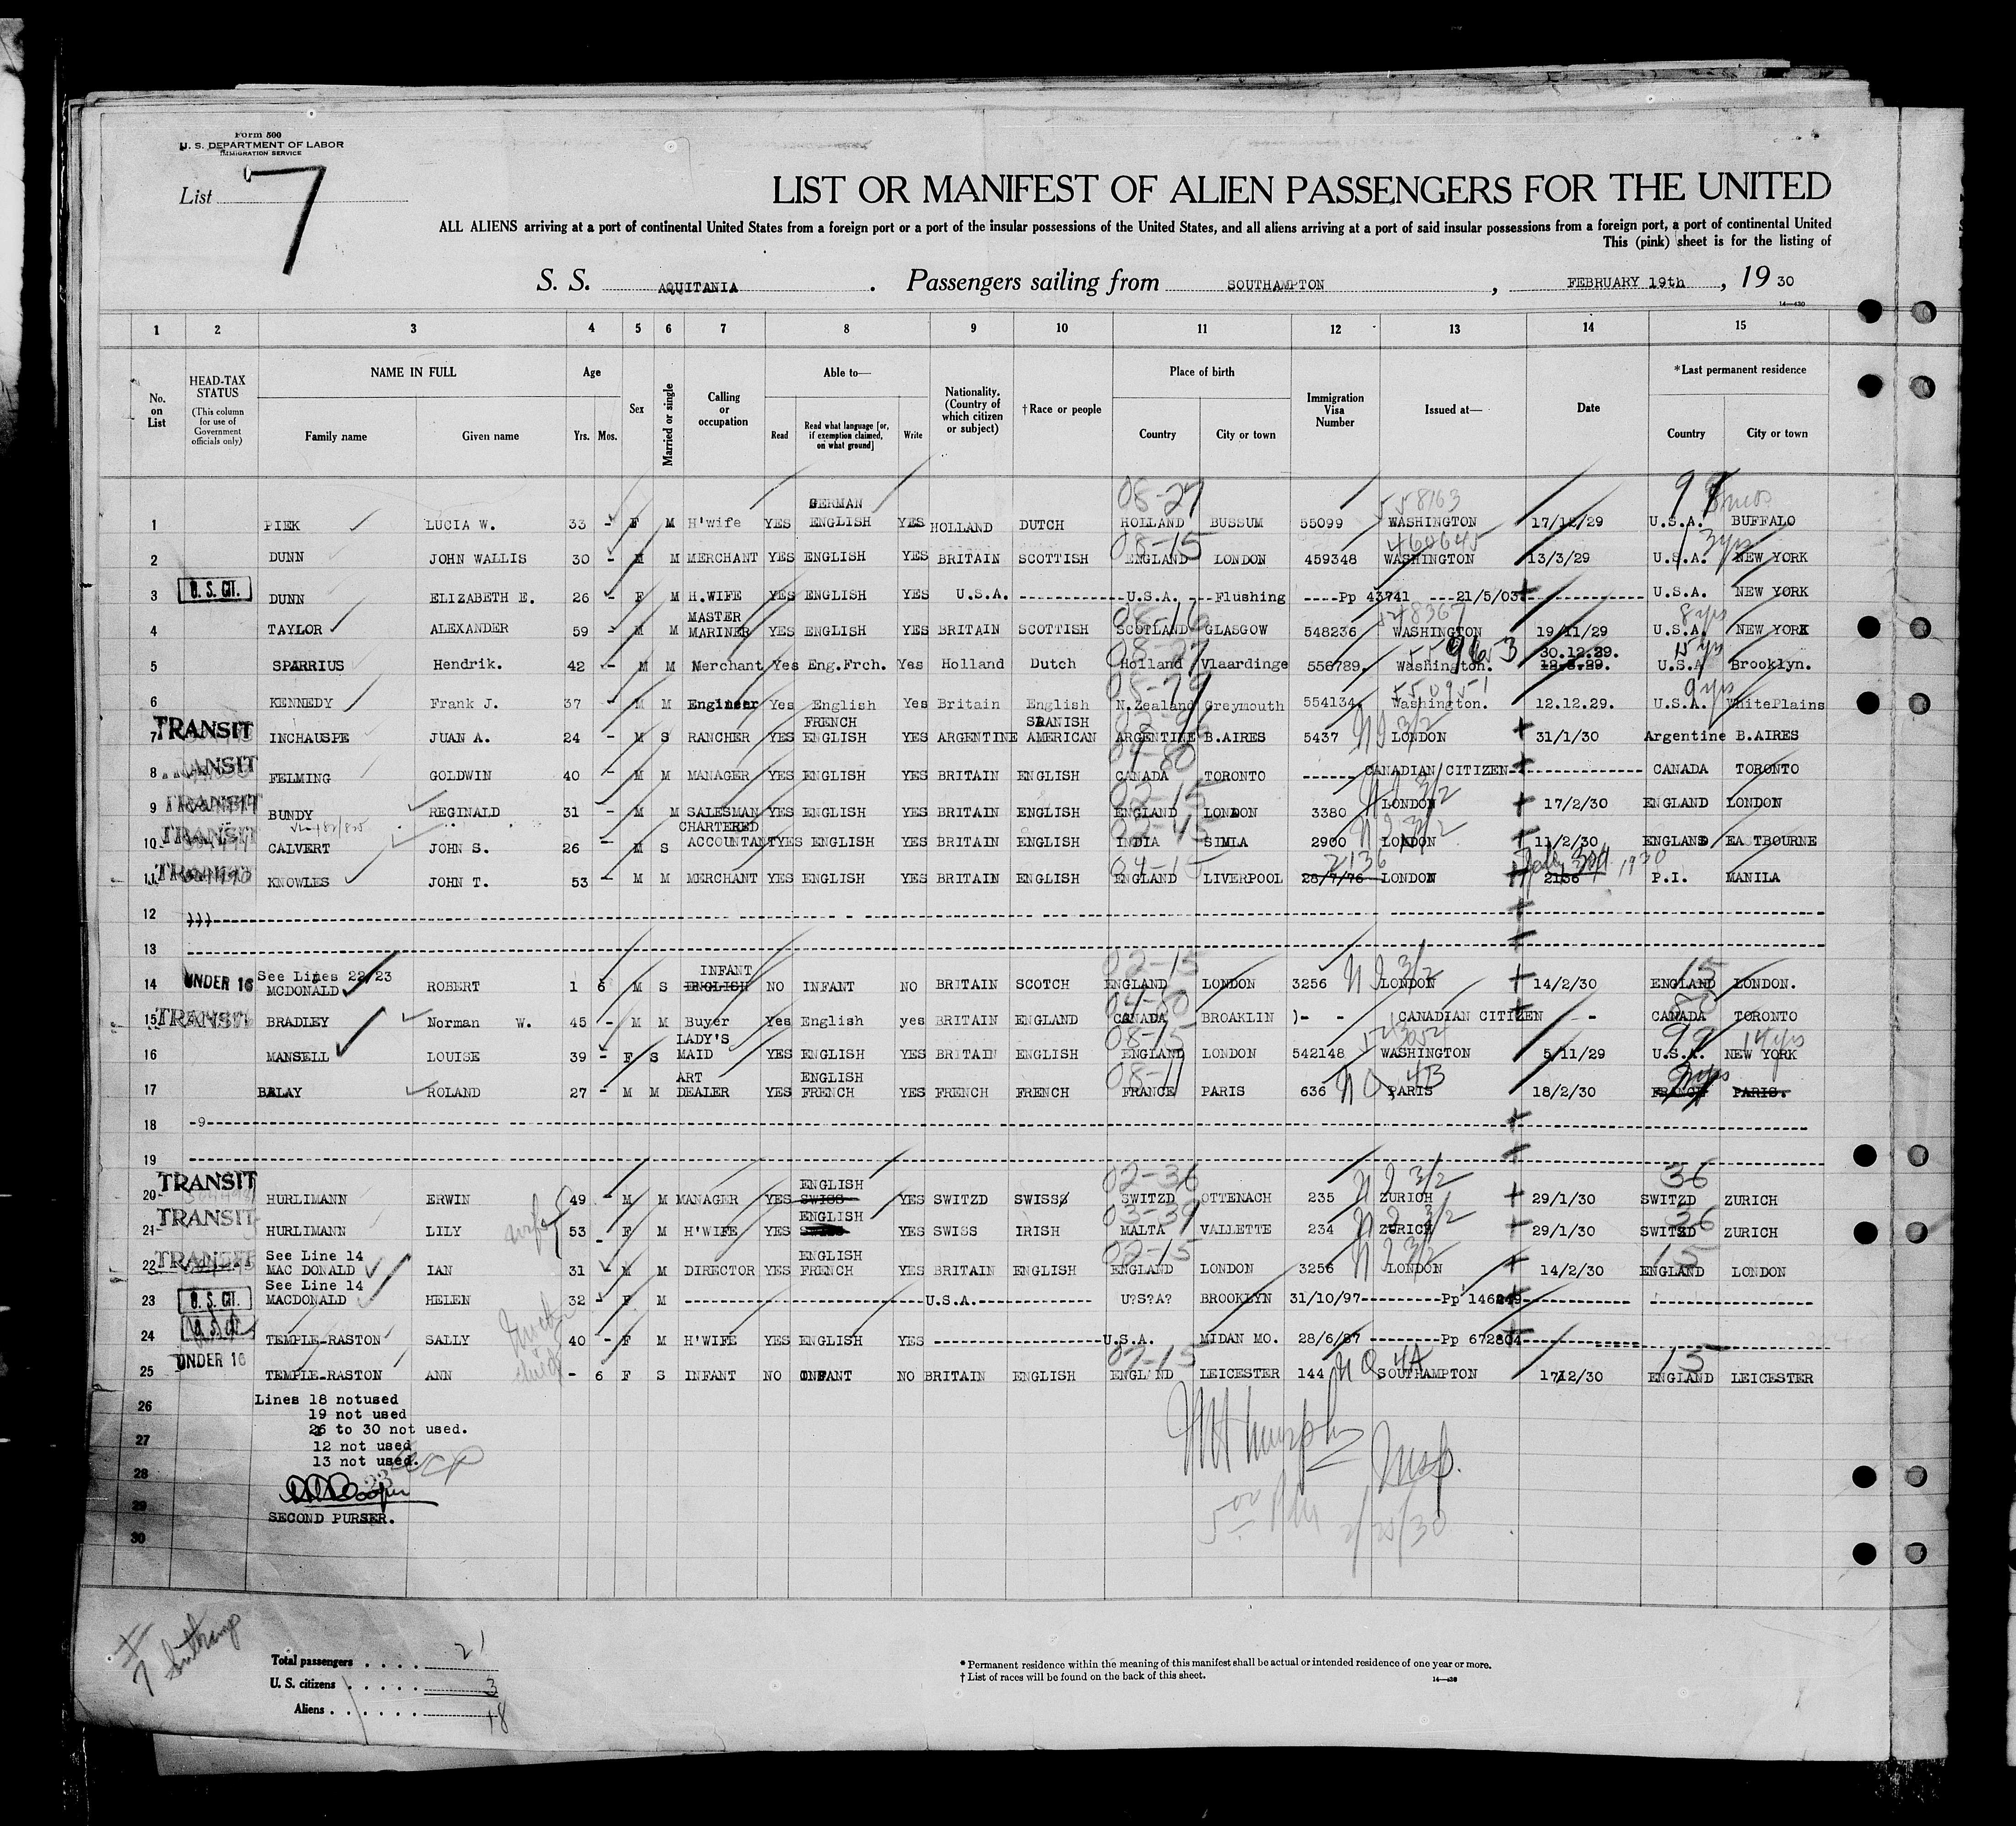 Form 500
U. S. DEPARTMENT OF LABOR
IMMIGRATION SERVICE
List 7
LIST OR MANIFEST OF ALIEN PASSENGERS FOR THE UNITED
ALL ALIENS arriving at a port of continental United States from a foreign port or a port of the insular possessions of the United States, and all aliens arriving at a port of said insular possessions from a foreign port, a port of continental United
This (pink) sheet is for the listing of
S. S. AQUITANIA . Passengers sailing from SOUTHAMPTON , FEBRUARY 19th , 19 30
14—430
1 2 3 4 5 6 7 8 9 10 11 12 13 14 15
No. on List
HEAD-TAX STATUS (This column for use of Government officials only)
NAME IN FULL
Family name Given name
Age
Yrs. Mos.
Sex
Married or single
Calling or occupation
Able to—
Read Read what language [or, if exemption claimed, on what ground] Write
Nationality. (Country of which citizen or subject)
†Race or people
Place of birth
Country City or town
Immigration Visa Number
Issued at—
Date
*Last permanent residence
Country City or town
08-27 558163 99
GERMAN
1 PIEK LUCIA W. 33 - F M H'wife YES ENGLISH YES HOLLAND DUTCH HOLLAND BUSSUM 55099 WASHINGTON 17/12/29 U.S.A. BUFFALO
08-15 460645 3yrs
2 DUNN JOHN WALLIS 30 - M M MERCHANT YES ENGLISH YES BRITAIN SCOTTISH ENGLAND LONDON 459348 WASHINGTON 13/3/29 U.S.A. NEW YORK
3 U. S. CIT. DUNN ELIZABETH E. 26 - F M H.WIFE YES ENGLISH YES U.S.A. U.S.A. Flushing Pp 43741 21/5/03 U.S.A. NEW YORK
MASTER 08-16 548367 8yrs
4 TAYLOR ALEXANDER 59 - M M MARINER YES ENGLISH YES BRITAIN SCOTTISH SCOTLAND GLASGOW 548236 WASHINGTON 19/11/29 U.S.A. NEW YORK
08-27 30.12.29.
5 SPARRIUS Hendrik. 42 - M M Merchant Yes Eng.Frch. Yes Holland Dutch Holland Vlaardinge 556789. Washington. 12.8.29. U.S.A Brooklyn.
550951 9yrs
6 KENNEDY Frank J. 37 - M M Engineer Yes English Yes Britain English N.Zealand Greymouth 554134. Washington. 12.12.29. U.S.A. WhitePlains
FRENCH SPANISH
7 TRANSIT INCHAUSPE JUAN A. 24 - M S RANCHER YES ENGLISH YES ARGENTINE AMERICAN ARGENTINE B.AIRES 5437 LONDON 31/1/30 Argentine B.AIRES
04-80
8 TRANSIT FELMING GOLDWIN 40 - M M MANAGER YES ENGLISH YES BRITAIN ENGLISH CANADA TORONTO CANADIAN CITIZEN CANADA TORONTO
02-15
9 TRANSIT BUNDY REGINALD 31 - M M SALESMAN YES ENGLISH YES BRITAIN ENGLISH ENGLAND LONDON 3380 LONDON 17/2/30 ENGLAND LONDON
CHARTERED 02-45
10 TRANSIT CALVERT JOHN S. 26 - M S ACCOUNTANT YES ENGLISH YES BRITAIN ENGLISH INDIA SIMLA 2900 LONDON 11/2/30 ENGLAND EASTBOURNE
04-15 2136 1930
11 TRANSIT KNOWLES JOHN T. 53 - M M MERCHANT YES ENGLISH YES BRITAIN ENGLISH ENGLAND LIVERPOOL 28/7/76 LONDON 2136 P.I. MANILA
12 )))
13
See Lines 22/23 INFANT 02-15 15
14 UNDER 16 MCDONALD ROBERT 1 6 M S ENGLISH NO INFANT NO BRITAIN SCOTCH ENGLAND LONDON 3256 LONDON 14/2/30 ENGLAND LONDON.
04-80 80
15 TRANSIT BRADLEY Norman W. 45 - M M Buyer Yes English yes BRITAIN ENGLAND CANADA BROAKLIN )- - CANADIAN CITIZEN - CANADA TORONTO
LADY'S 08-15 99 14yrs
16 MANSELL LOUISE 39 - F S MAID YES ENGLISH YES BRITAIN ENGLISH ENGLAND LONDON 542148 WASHINGTON 5/11/29 U.S.A. NEW YORK
ART ENGLISH 08-11
17 BALAY ROLAND 27 - M M DEALER YES FRENCH YES FRENCH FRENCH FRANCE PARIS 636 PARIS 18/2/30 FRANCE PARIS.
18 -9-
19
ENGLISH 02-36 36
20 TRANSIT HURLIMANN ERWIN 49 - M M MANAGER YES SWISS YES SWITZD SWISS SWITZD OTTENACH 235 ZURICH 29/1/30 SWITZD ZURICH
wife ENGLISH 03-39 36
21 TRANSIT HURLIMANN LILY 53 - F M H'WIFE YES YES SWISS IRISH MALTA VALLETTE 234 ZURICH 29/1/30 SWITZD ZURICH
See Line 14 ENGLISH 02-15 15
22 TRANSIT MAC DONALD IAN 31 - M M DIRECTOR YES FRENCH YES BRITAIN ENGLISH ENGLAND LONDON 3256 LONDON 14/2/30 ENGLAND LONDON
See Line 14
23 U. S. CIT. MACDONALD HELEN 32 - F M U.S.A. U?S?A? BROOKLYN 31/10/97 Pp 146249
24 TEMPLE-RASTON SALLY 40 - F M H'WIFE YES ENGLISH YES U.S.A. MIDAN MO. 28/6/87 Pp 672804
07-15 15
25 UNDER 16 TEMPLE-RASTON ANN - 6 F S INFANT NO INFANT NO BRITAIN ENGLISH ENGLAND LEICESTER 144 SOUTHAMPTON 17/2/30 ENGLAND LEICESTER
26 Lines 18 notused
19 not used
26 to 30 not used.
27 12 not used
13 not used.
28
29
SECOND PURSER.
30
Murphy Insp.
5 00 PM 2/25/30
7 Southamp
Total passengers . . . . 21
U. S. citizens . . . . . 3
Aliens . . . . . . 18
* Permanent residence within the meaning of this manifest shall be actual or intended residence of one year or more.
† List of races will be found on the back of this sheet.
14—430